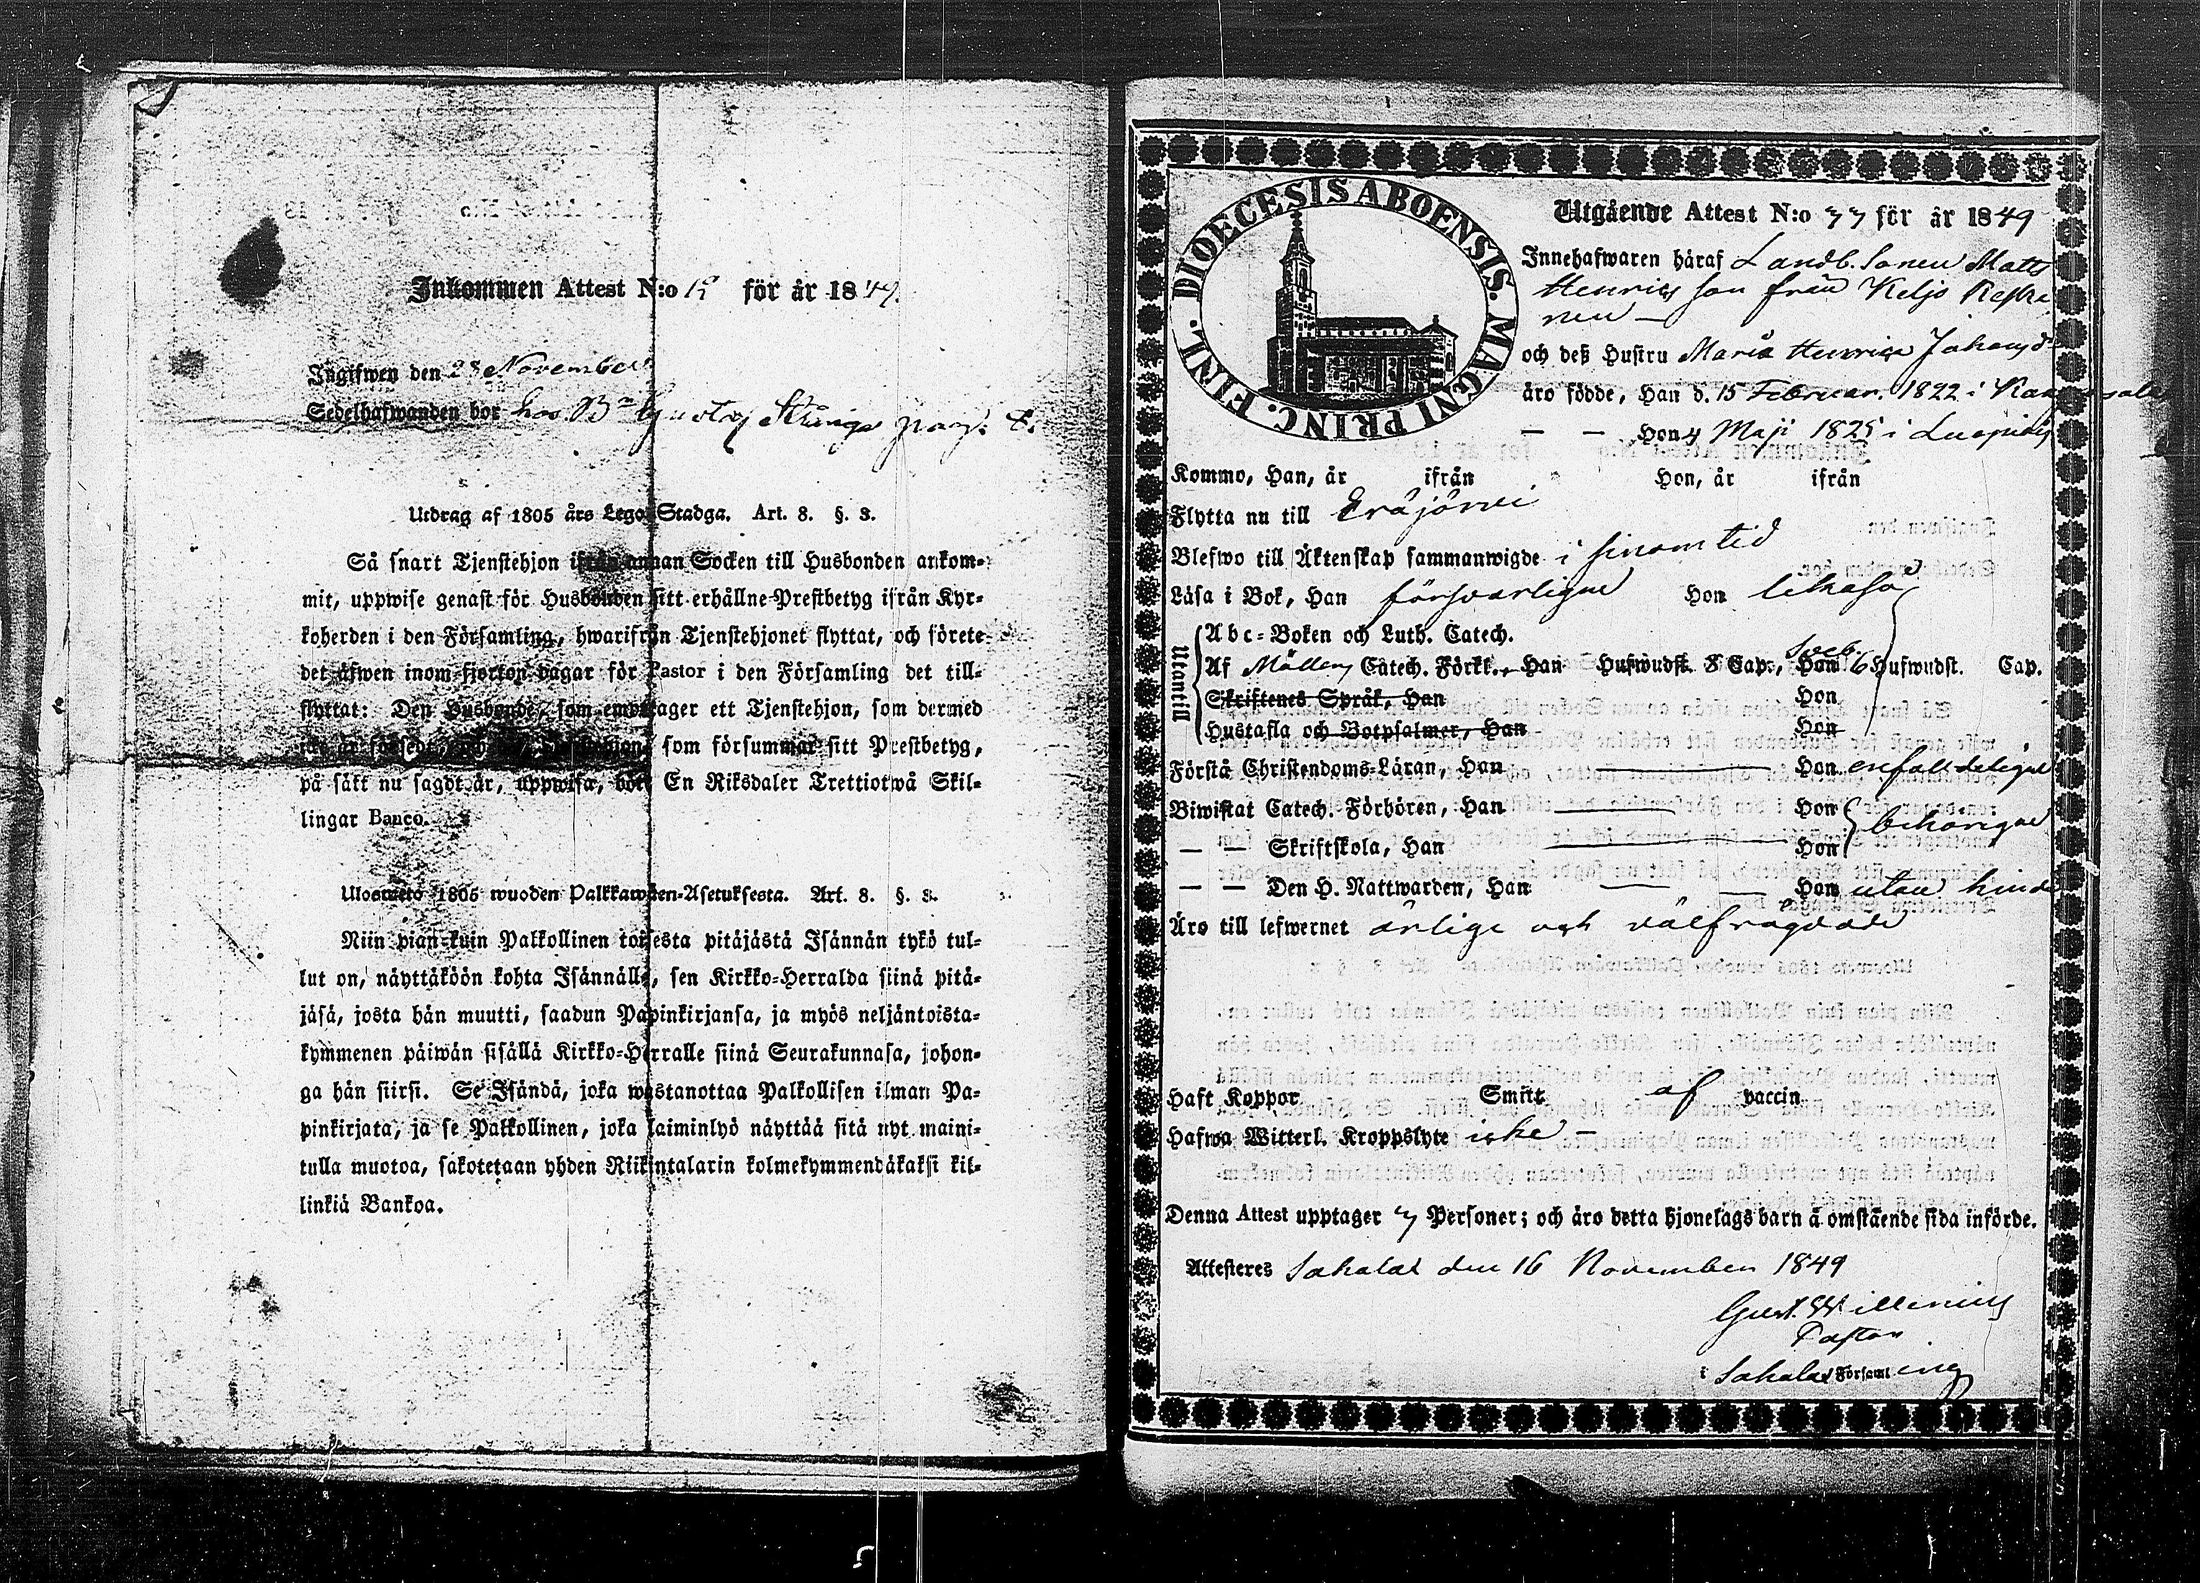 Inkommen Attest N:o 12 för år 1849.
Ingifwen den 28 November
Sedelhafwanden bor hos Bn Gustaf
Utdrag af 1805 års Lego-Stadga. Art. 8. §. 3.
Så snart Tjenstehjon ifrån annan Socken till Husbonden ankom-
mit, uppwise genast för Husbonden sitt erhållne Prestbetyg ifrån Kyr-
koherden i den Församling, hwarifrån Tjenstehjonet flyttat, och förete-
det äfwen inom fjorton dagar för Pastor i den Församling det till-
flyttat: Den Husbonde, som emottager ett Tjenstehjon, som dermed
icke är försedt, som försummar sitt Prestbetyg,
på sätt nu sagdt är, uppwisa, böte En Riksdaler Trettiotwå Skil-
lingar Banco.
Ulosweto 1805 wuoden Palkkawäen-Asetuksesta. Art. 8. §. 3.
Niin pian kuin Palkollinen toisesta pitäjästä Isännän tykö tul-
lut on, näyttäköön kohta Isännälle, sen Kirkko-Herralda siinä pitä-
jäsä, josta hän muutti, saadun Papinkirjansa, ja myös neljäntoista-
kymmenen päiwän sisällä Kirkko-Herralle siinä Seurakunnasa, johon-
ga hän siirsi. Se Isändä, joka wastanottaa Palkollisen ilman Pa-
pinkirjata, ja se Palkollinen, joka laiminlyö näyttää sitä nyt maini-
tulla muotoa, sakotetaan yhden Riikintalarin kolmekymmendäkaksi kil-
linkiä Bankoa.
DIOECESIS ABOENSIS. MAGNI PRINC. FINL.
Utgående Attest N:o 77 för år 1849
Innehafwaren häraf Landb. Sonen Matts
Henricsson från Keljo Keska
nen
och deß Hustru Maria Henrica Johansd:
äro födde, Han d. 15 Februar. 1822 i
— — Hon 4 Maji 1825 i
Kommo, Han, år ifrån Hon, år ifrån
Flytta nu till Eräjärvi
Blefwo till Äktenskap sammanwigde i sinom tid
Läsa i Bok, Han försvarligen Hon likaså
Utantill
Abc-Boken och Luth. Catech.
Af Möllers Catech. Förkl., Han Hufwudst. 8 Cap., Hon 6 Hufwudst. Cap.
Skriftenes Språk, Han Hon
Hustafla och Botpsalmer, Han Hon
Förstå Christendoms-Läran, Han — Hon enfalldeligen
Biwistat Catech. Förhören, Han — Hon behörigen
— — Skriftskola, Han — Hon
— — Den H. Nattwarden, Han — — Hon utan hinder
Äro till lefwernet ärlige och välfrägdade
Haft Koppor Smitt af vaccin
Hafwa Witterl. Kroppslyte icke —
Denna Attest upptager 7 Personer; och äro detta hjonelags barn å omstående sida införde.
Attesteres Sahalax den 16 November 1849
Gust. Willenius
Pastor
i Sahalax Församling